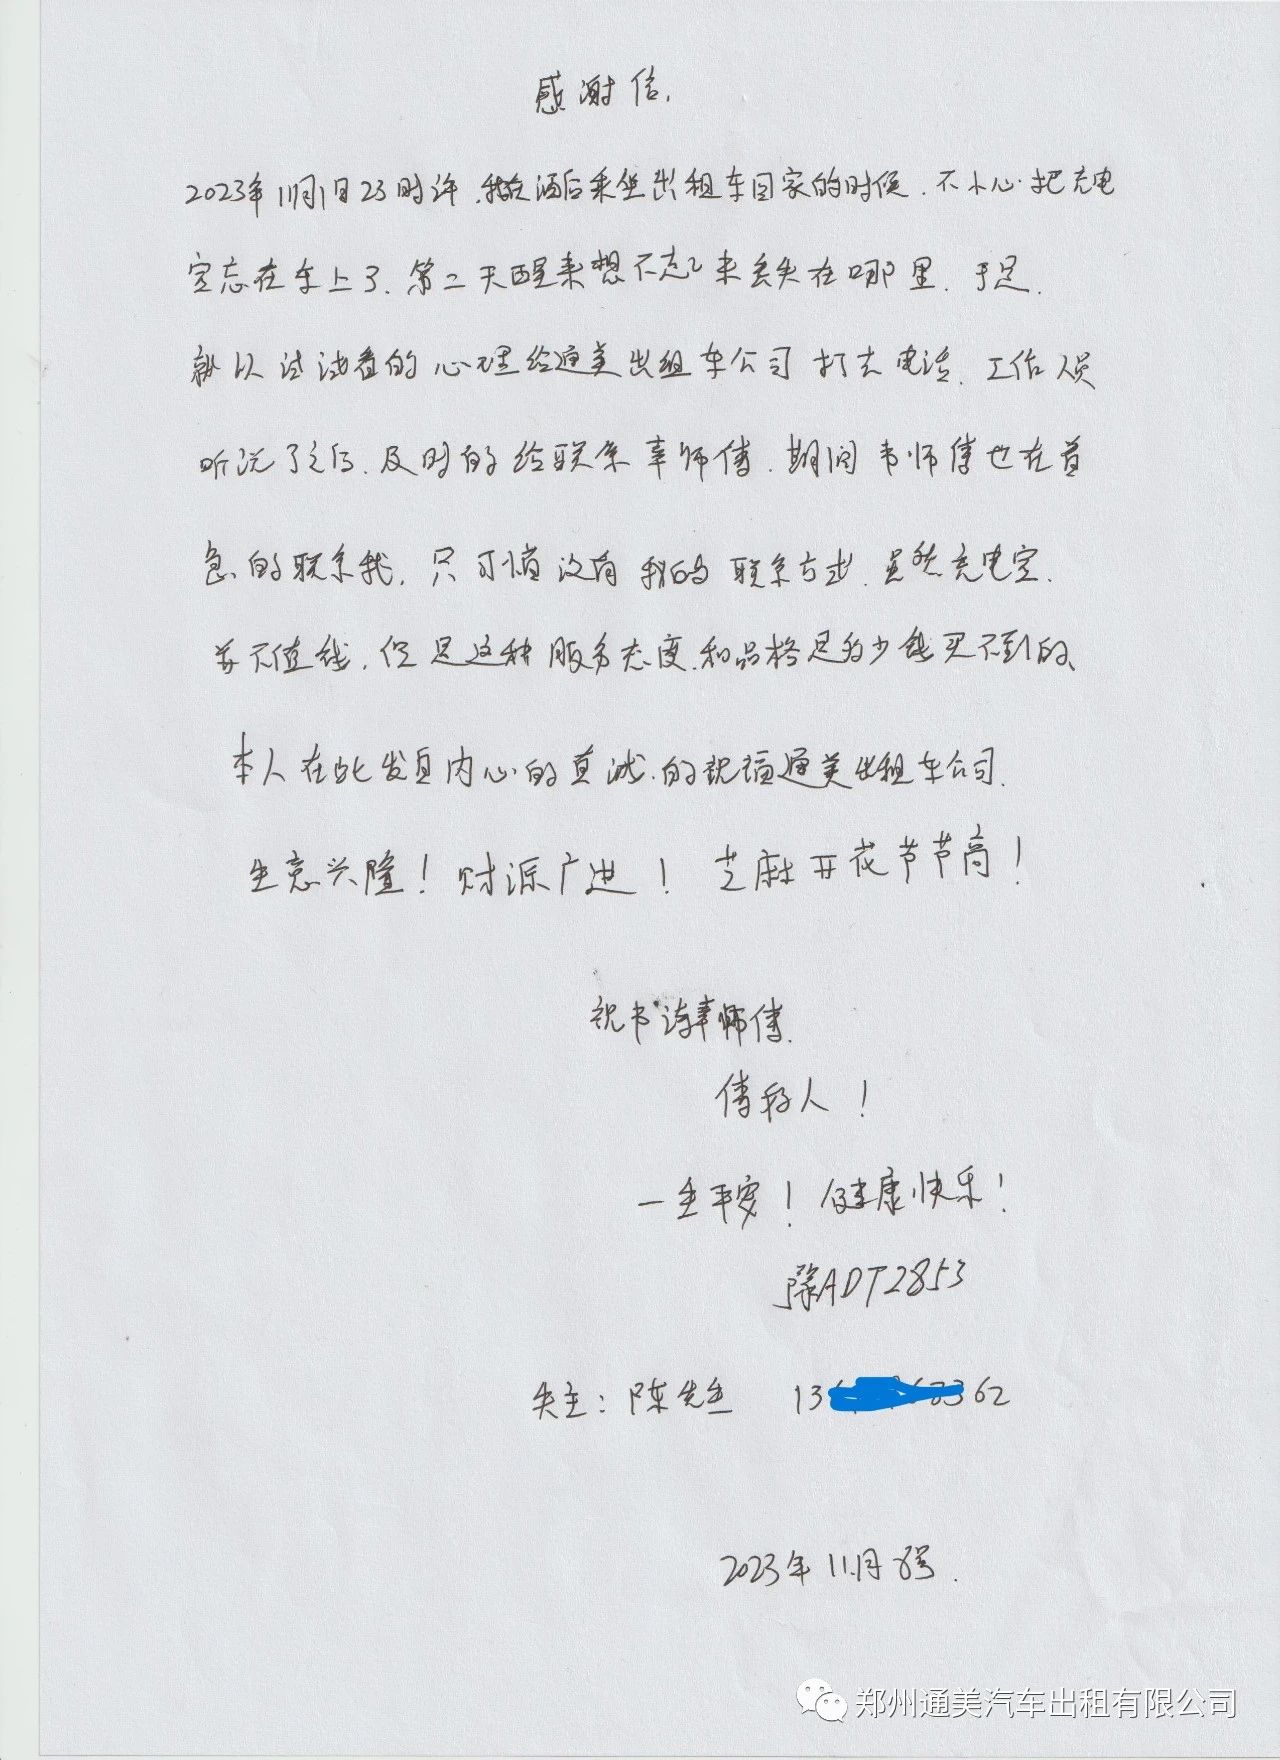 感谢信.
2023年11月1日23时许.我在酒后乘坐出租车回家的时候.不小心把充电
宝忘在车上了.第二天醒来想不起来丢失在哪里.于是.
就以试试看的心理给通美出租车公司打去电话.工作人员
听说了之后.及时的给联系韦师傅.期间韦师傅也在着
急的联系我.只可惜没有我的联系方式.虽然充电宝.
并不值钱.但是这种服务态度.和品格是多少钱买不到的、
本人在此发自内心的真诚.的祝福通美出租车公司.
生意兴隆!财源广进!芝麻开花节节高!
祝韦师傅.
一生平安!健康快乐!
豫ADT2853
失主:陈先生 13 362
2023年11.月8号.
郑州通美汽车出租有限公司